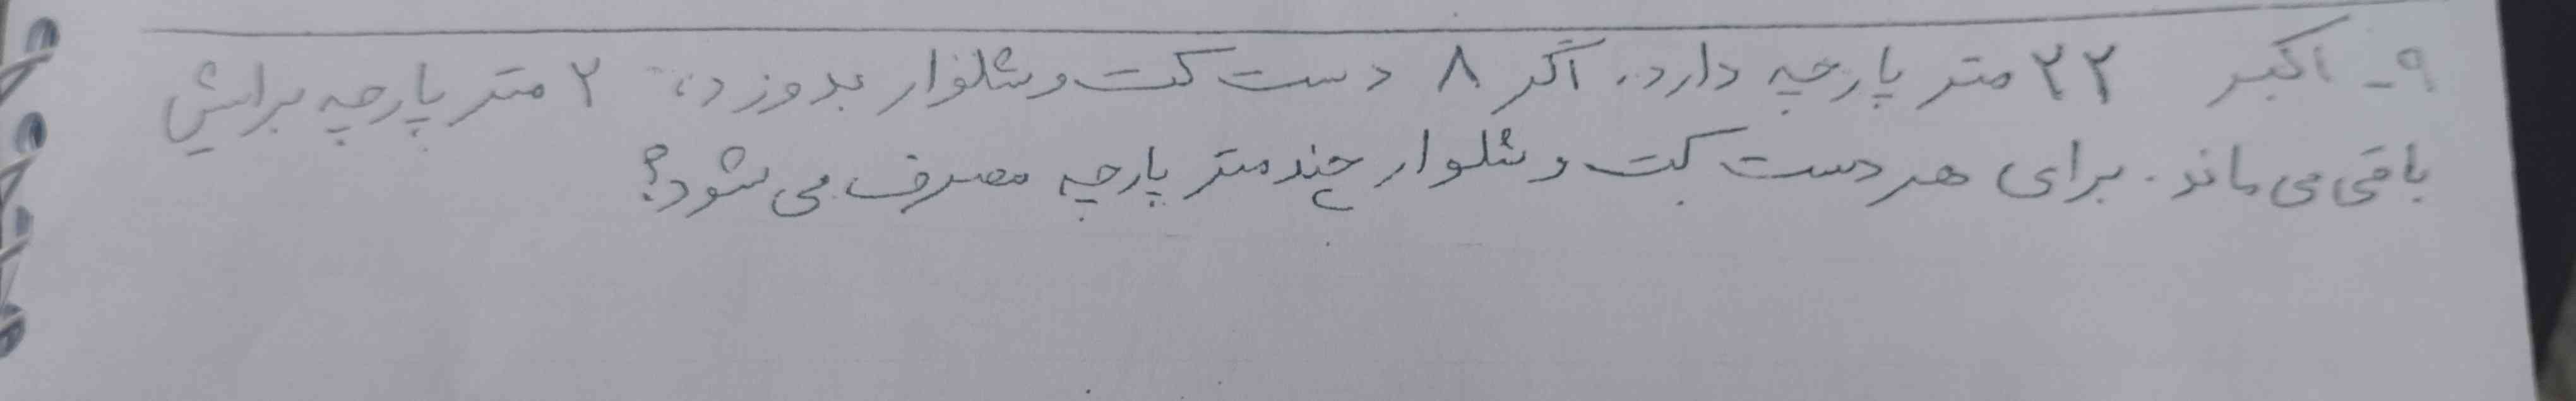 ۹- اکبر ۲۲ متر پارچه دارد. اگر ۸ دست کت و شلوار بدوزد، ۲ متر پارچه برایش
باقی می ماند. برای هر دست کت و شلوار چند متر پارچه مصرف می شود؟